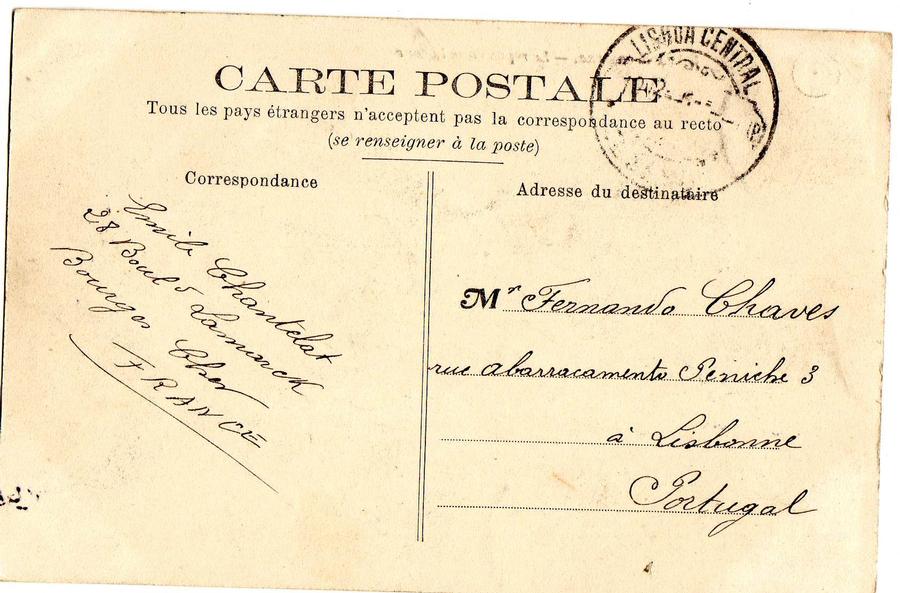 CARTE POSTALE
Tous les pays étrangers n'acceptent pas la correspondance au recto
(se renseigner à la poste)
LISBOA CENTRAL
Correspondance
Emile Chantelat
28 Boul d Lamarck
Bourges Cher
FRANCE
Adresse du destinataire
Mr Fernando Chaves
rue abarracamento Peniche 3
à Lisbonne
Portugal